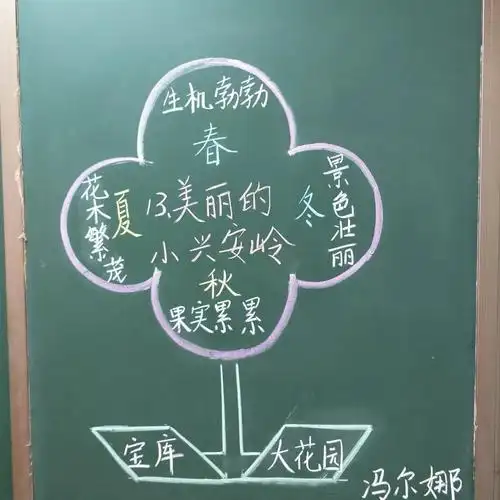 生机勃勃
春
花木繁茂
夏
13.美丽的
小兴安岭
冬
景色壮丽
秋
果实累累
宝库
大花园
冯尔娜